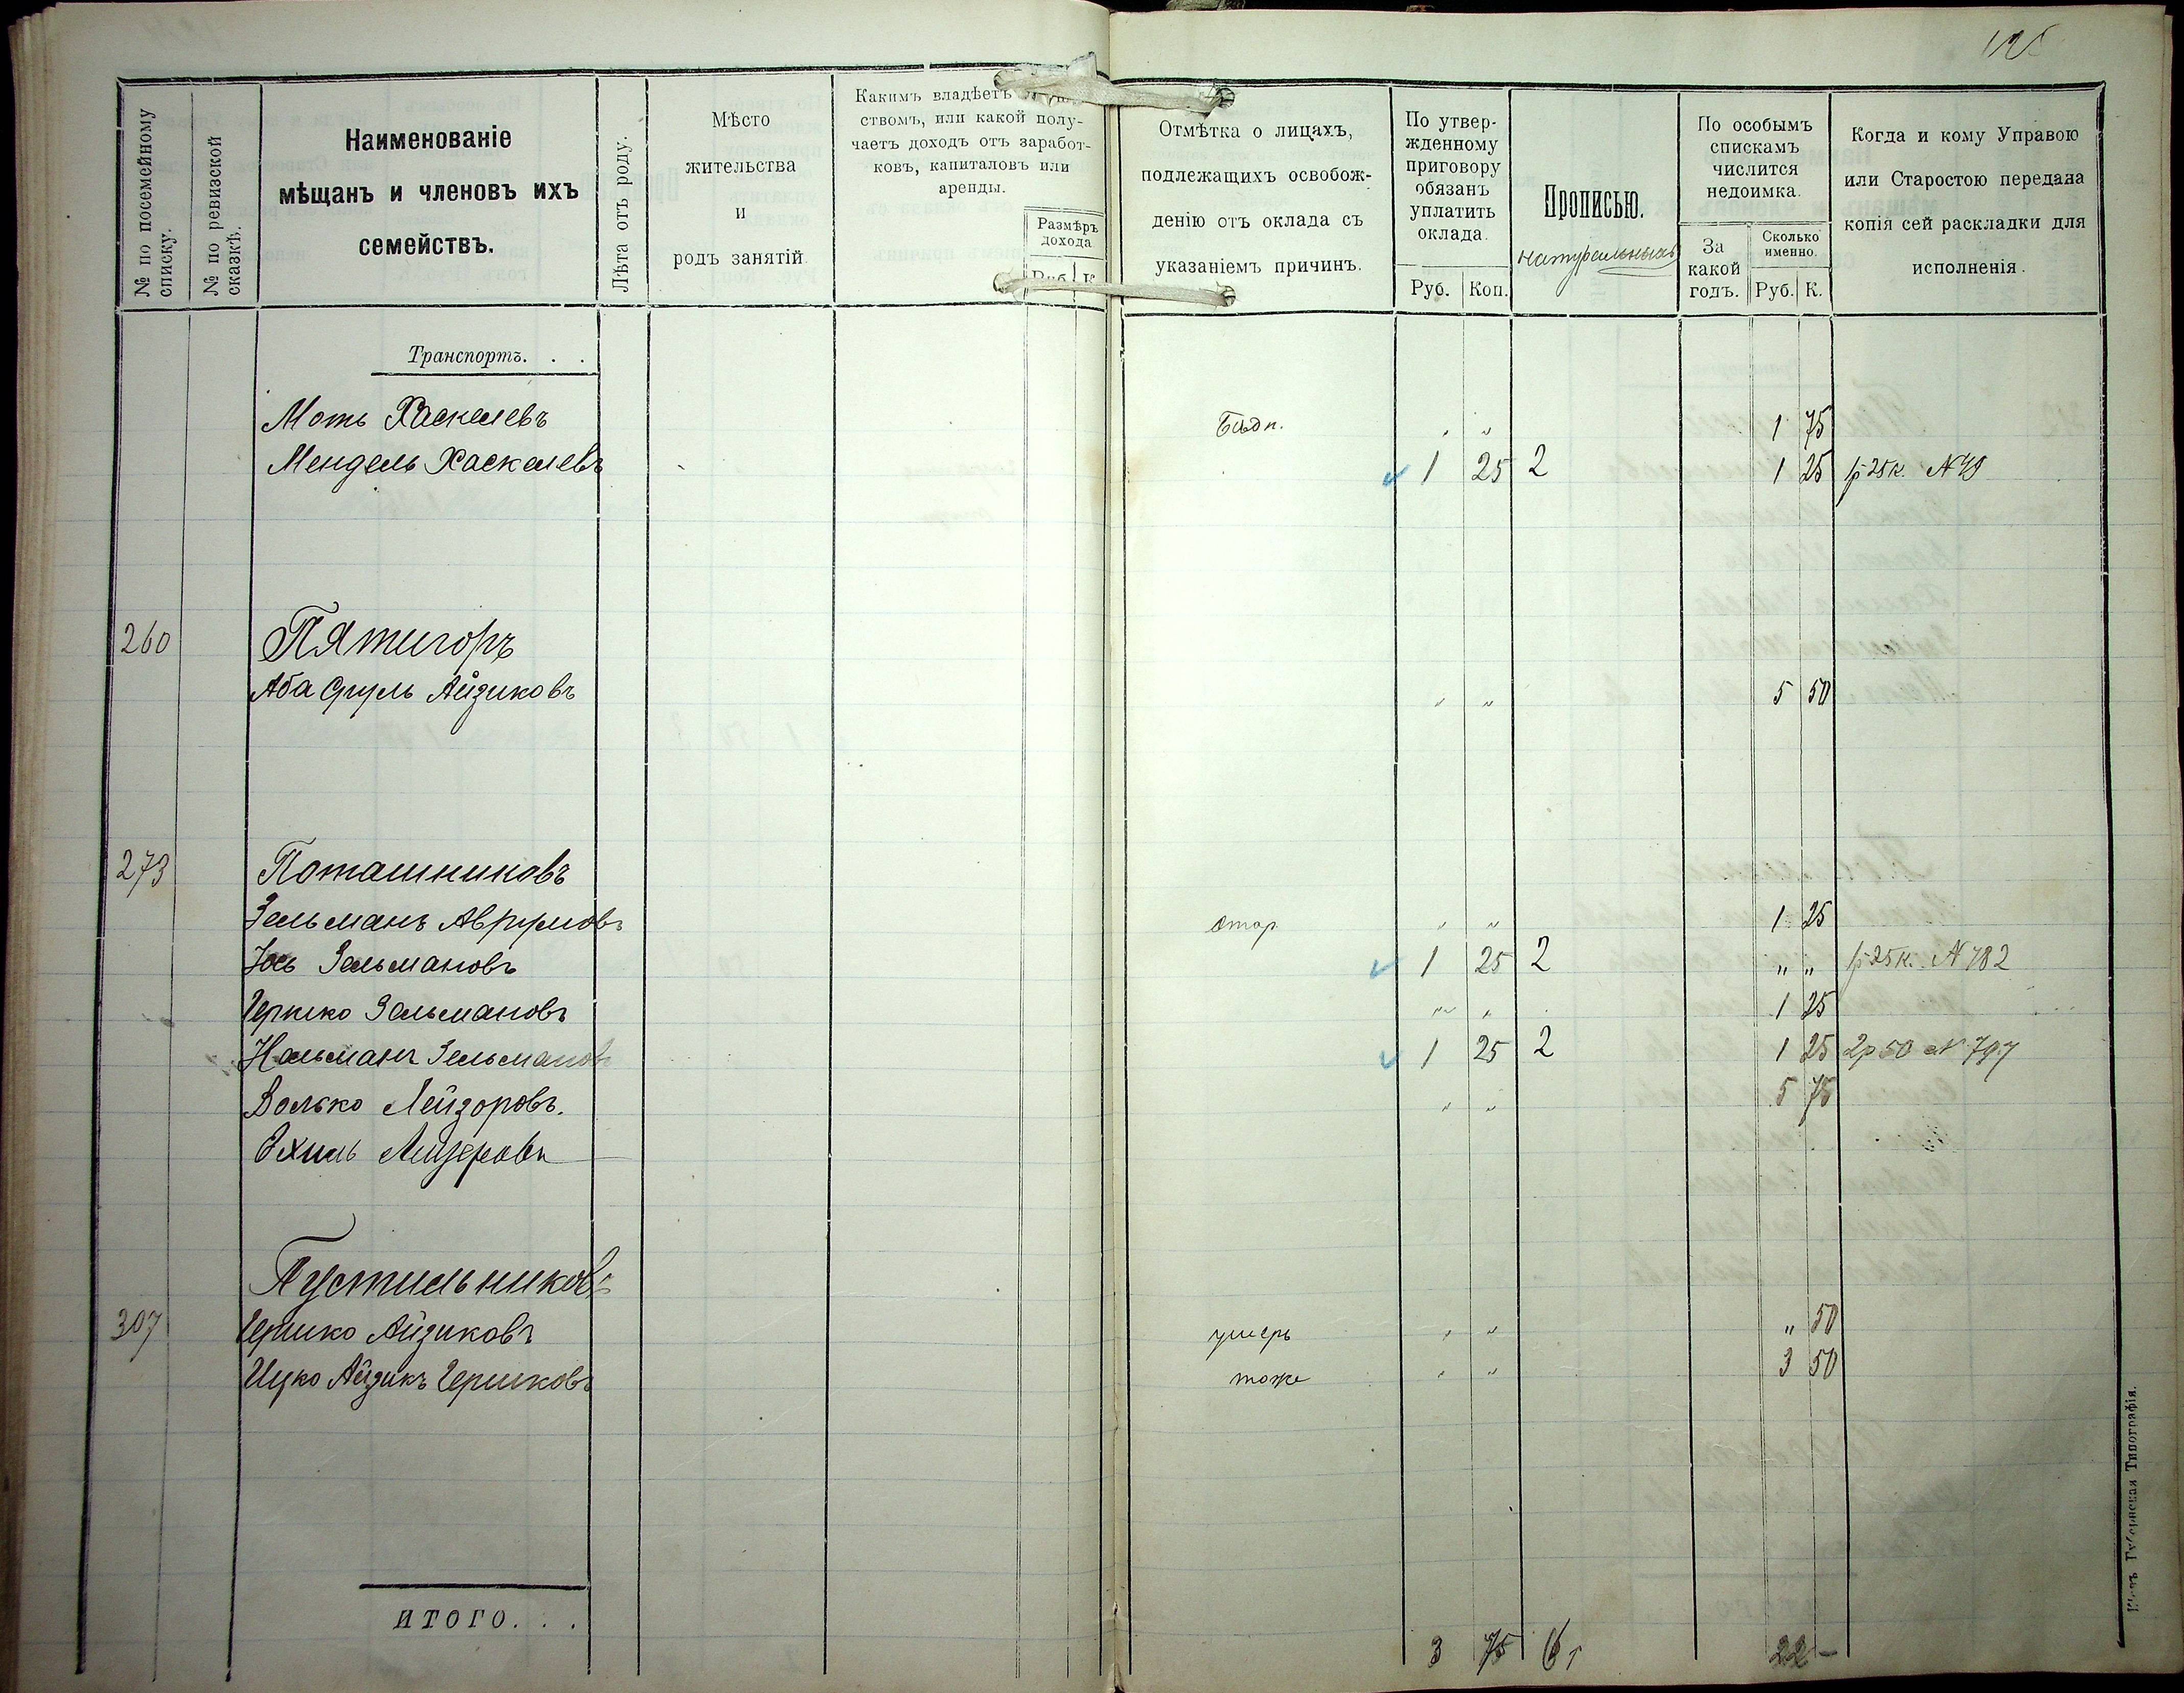 № по посемейному списку.
№ по ревизской сказкѣ.
Наименованіе
мѣщанъ и членовъ ихъ
семействъ.
Лѣта отъ роду.
Мѣсто
жительства
и
родъ занятій.
Какимъ владѣетъ
ствомъ, или какой полу-
чаетъ доходъ отъ заработ-
ковъ, капиталовъ или
аренды.
Размѣръ
дохода
Руб. К.
Отмѣтка о лицахъ,
подлежащихъ освобож-
денію отъ оклада съ
указаніемъ причинъ.
По утвер-
жденному
приговору
обязанъ
уплатить
оклада.
Руб. Коп.
Прописью.
натуральныхъ
По особымъ
спискамъ
числится
недоимка.
За
какой
годъ.
Сколько
именно.
Руб. К.
Когда и кому Управою
или Старостою передана
копія сей раскладки для
исполненія.
Транспортъ. . .
Моть Хаскелевъ Бѣдн. " " 1 75
Мендель Хаскелевъ 1 25 2 1 25 1р 25к. №
260 Пятигоръ
Аба Сруль Айзиковъ " " 5 50
273 Поташниковъ
Зельманъ Аврумовъ стар " " 1 25
Іось Зельмановъ 1 25 2 " " 1р 25к. № 782
Гершко Зельмановъ " " 1 25
Кальманъ Зельмановъ 1 25 2 1 25 2р 50 № 797
Волько Лейзоровъ. " " 5 75
Ехиль Лейзеровъ
Пустильниковъ
307 Гершко Айзиковъ умеръ " " " 50
Ицко Айзикъ Гершковъ тоже " " 3 50
ИТОГО. . .
3 75 6 22 –
Кіевъ Губернская Типографія.